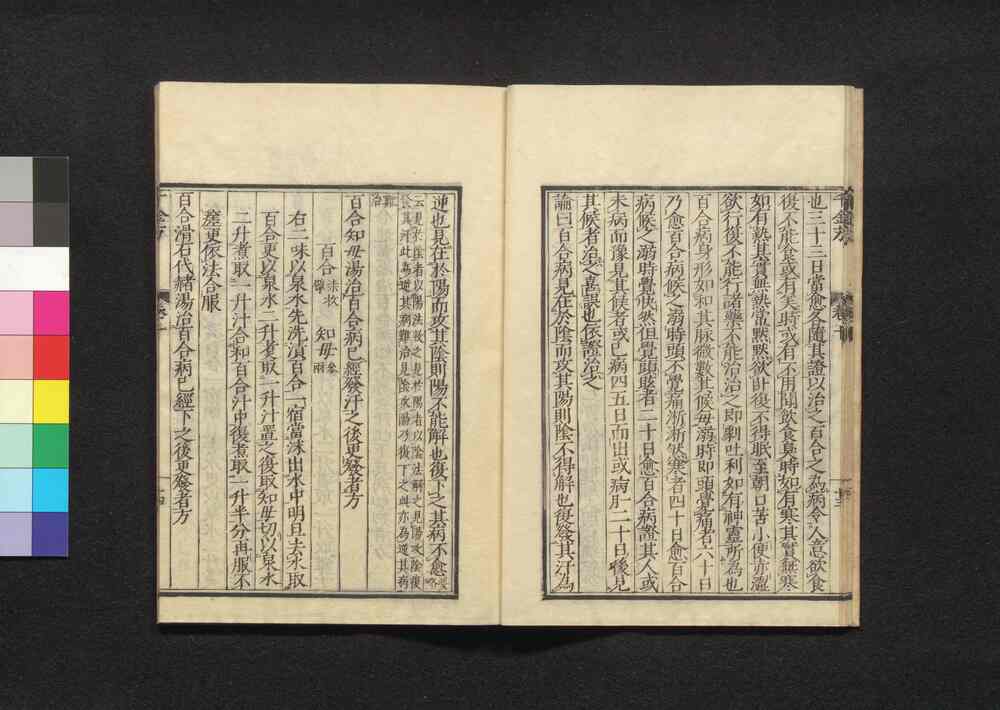 千金方 卷十
也三十三日當愈久隨其證以治之百合之為病令人意欲食
後不能食或有美時或有不用聞飲食臭時如有寒其實無寒
如有熱其實無熱常默默欲臥復不得眠至朝口苦小便赤澀
欲行復不能行諸藥不能治治之即劇吐利如有神靈所為也
百合病身形如和其脉微數其候每溺時即頭覺痛者六十日
乃愈百合病候之溺時頭不覺痛淅淅然寒者四十日愈百合
病候之溺時覺怏然但覺頭眩者二十日愈百合病證其人或
未病而豫見其候者或已病四五日而出或病一月二十日後見
其候者治之喜誤也依證治之
論曰百合病見在於陰而攻其陽則陰不得解也復發其汗為
逆也見在於陽而攻其陰則陽不能解也復下之其病不愈
云見於陰者以陽法救之見於陽者以陰法解之見陽攻陰復
發其汗此為逆其病難治見陰攻陽乃復下之此亦為逆其病
難治
百合知母湯治百合病已經發汗之後更發者方
百合 七枚擘 知母 三兩
右二味以泉水先洗漬百合一宿當沫出水中明旦去水取
百合更以泉水二升煮取一升汁置之復取知母切以泉水
二升煮取一升汁合和百合汁中復煮取一升半分再服不
瘥更依法合服
百合滑石代赭湯治百合病已經下之後更發者方
千金方 卷十 十四